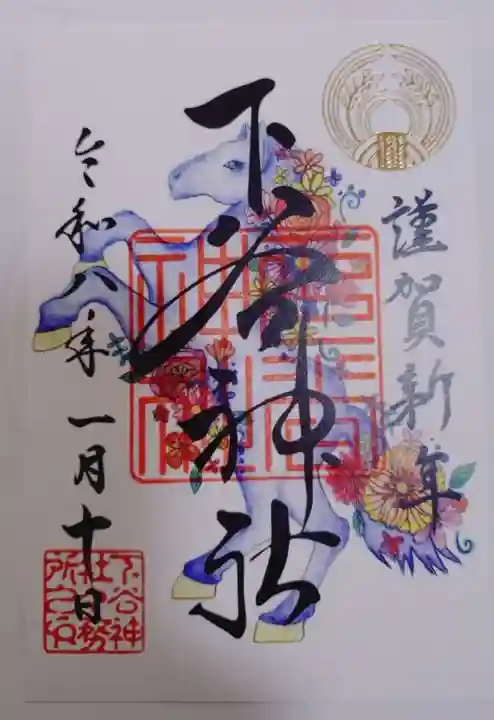 謹賀新年
下谷神社
令和八年一月十日
下谷神
社社務
所之印